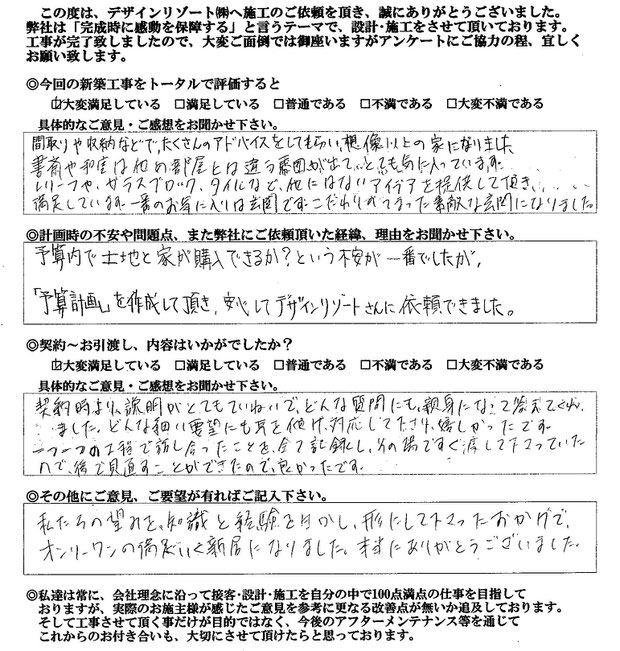 この度は、デザインリゾート㈱へ施工のご依頼を頂き、誠にありがとうございました。
弊社は「完成時に感動を保障する」と言うテーマで、設計・施工をさせて頂いております。
工事が完了致しましたので、大変ご面倒では御座いますがアンケートにご協力の程、宜しく
お願い致します。
◎今回の新築工事をトータルで評価すると
☑大変満足している □満足している □普通である □不満である □大変不満である
具体的なご意見・ご感想をお聞かせ下さい。
間取りや収納などで、たくさんのアドバイスをしてもらい、想像以上の家になりました。
書斎や和室は他の部屋とは違う雰囲気が出て、とても気に入っています。
レリーフや、ガラスブロック、タイルなど、他にはないアイデアを提供して頂き、
満足しています。一番のお気に入りは玄関です。こだわりがつまった素敵な玄関になりました。
◎計画時の不安や問題点、また弊社にご依頼頂いた経緯、理由をお聞かせ下さい。
予算内で土地と家が購入できるか？という不安が一番でしたが、
「予算計画」を作成して頂き、安心してデザインリゾートさんに依頼できました。
◎契約～お引渡し、内容はいかがでしたか？
☑大変満足している □満足している □普通である □不満である □大変不満である
具体的なご意見・ご感想をお聞かせ下さい。
契約時より、説明がとてもていねいで、どんな質問にも、親身になって答えてくださ
いました。どんな細い要望にも耳を傾け、対応して下さり、嬉しかったです。
一つ一つの工程で話し合ったことを、全て記録し、その場ですぐ渡して下さっていた
ので、後で見直すことができたので、良かったです。
◎その他にご意見、ご要望が有ればご記入下さい。
私たちの望みを、知識と経験を生かし、形にして下さったおかげで、
オンリーワンの満足いく新居になりました。本当にありがとうございました。
◎私達は常に、会社理念に沿って接客・設計・施工を自分の中で100点満点の仕事を目指して
おりますが、実際のお施主様が感じたご意見を参考に更なる改善点が無いか追及しております。
そして工事させて頂く事だけが目的ではなく、今後のアフターメンテナンス等を通じて
これからのお付き合いも、大切にさせて頂けたらと思っております。